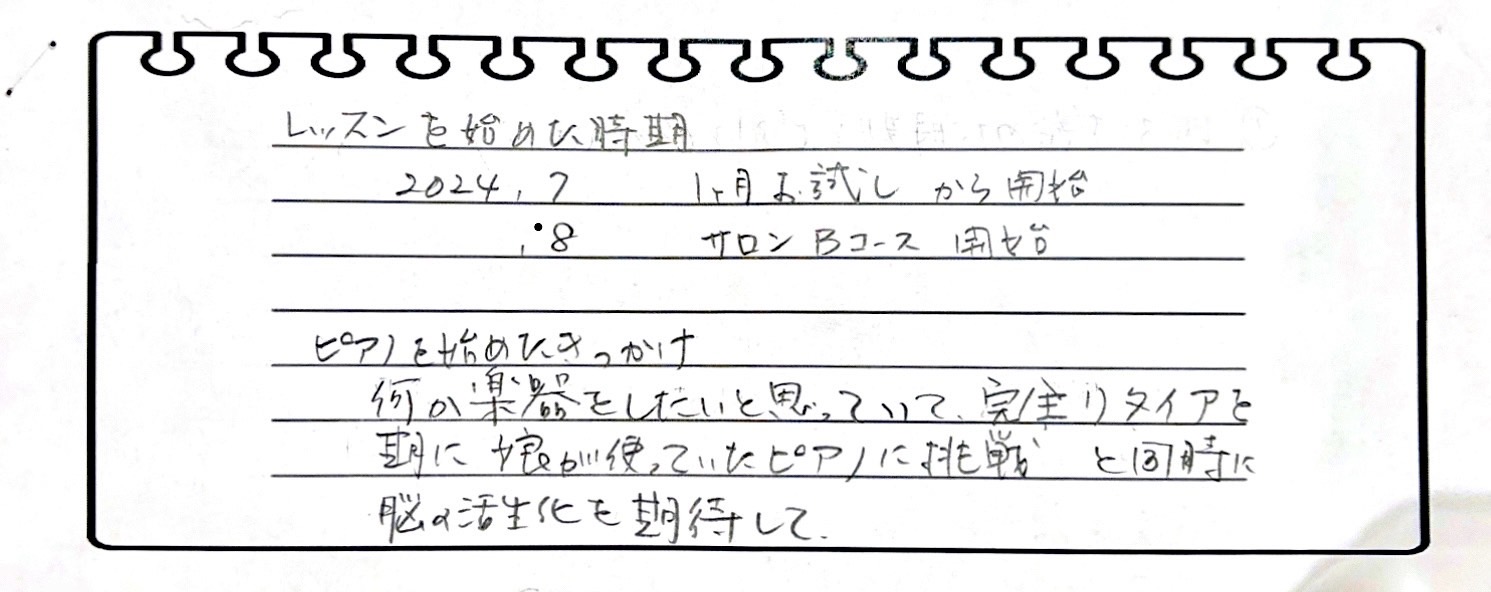 レッスンを始めた時期
2024.7 1ヶ月お試しから開始
.8 サロンBコース開始
ピアノを始めたきっかけ
何か楽器をしたいと思っていて、完全リタイアを
期に娘が使っていたピアノに挑戦 と同時に
脳の活性化を期待して.